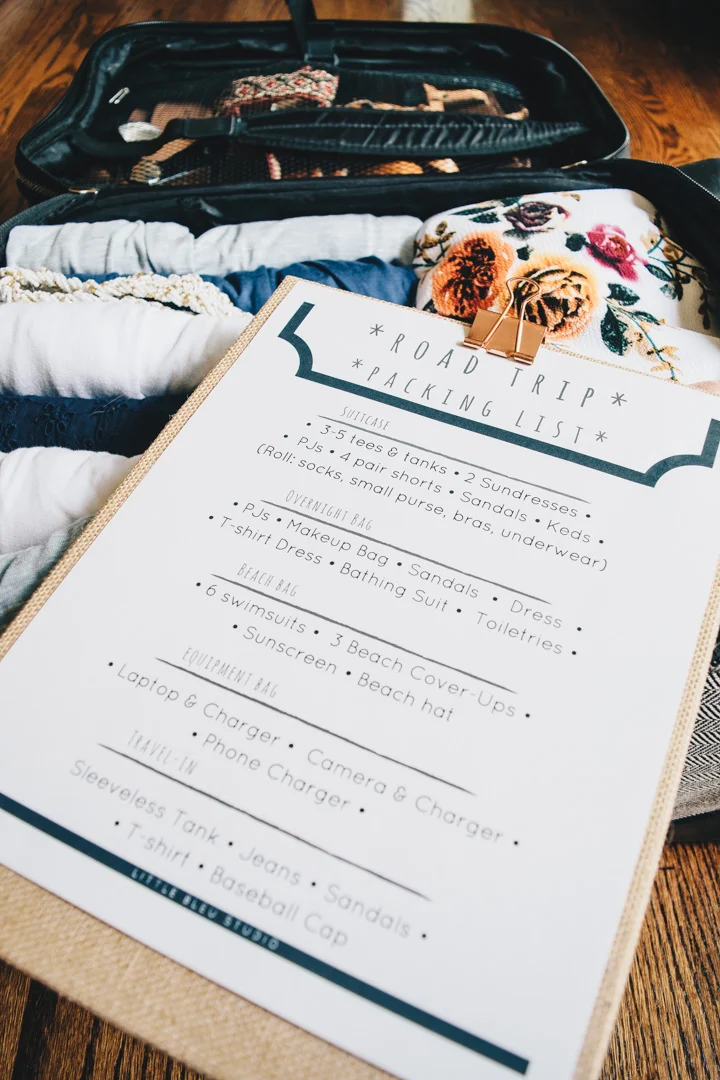 *ROAD TRIP*
*PACKING LIST*
SUITCASE
• 3-5 tees & tanks • 2 Sundresses •
• PJs • 4 pair shorts • Sandals • Keds •
(Roll: socks, small purse, bras, underwear)
OVERNIGHT BAG
• PJs • Makeup Bag • Sandals • Dress •
• T-shirt Dress • Bathing Suit • Toiletries •
BEACH BAG
• 6 swimsuits • 3 Beach Cover-Ups •
• Sunscreen • Beach hat
EQUIPMENT BAG
• Laptop & Charger • Camera & Charger •
• Phone Charger •
TRAVEL-IN
Sleeveless Tank • Jeans • Sandals •
• T-shirt • Baseball Cap
LITTLE BLEU STUDIO